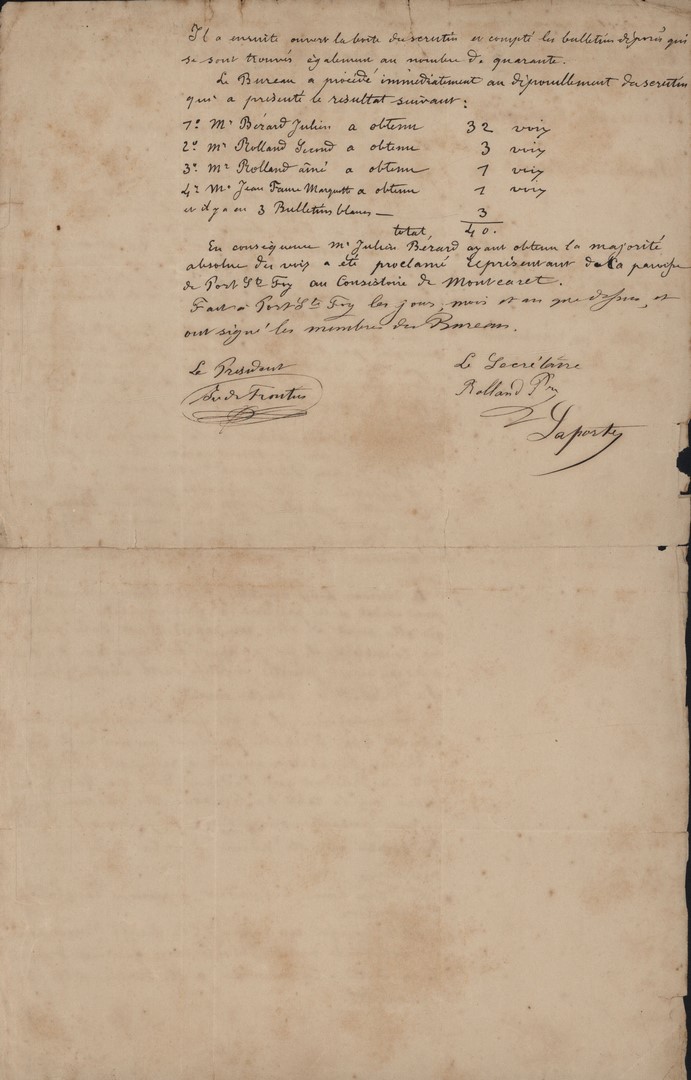 Il a ensuite ouvert la boite du scrutin et compté les bulletins déposés qui
se sont trouvés également au nombre de quarante.
Le Bureau a procédé immédiatement au dépouillement du scrutin
qui a présenté le résultat suivant :
1° Mr Bérard Julien a obtenu 32 voix
2° Mr Rolland Second a obtenu 3 voix
3° Mr Rolland ainé a obtenu 1 voix
4° Mr Jean Faure a obtenu 1 voix
et il y a eu 3 Bulletins blancs — 3
total, 40.
En conséquence Mr Julien Bérard ayant obtenu la majorité
absolue des voix a été proclamé représentant de la paroisse
de Port Ste Foy au Consistoire de Montcaret.
Fait à Port Ste Foy les jour, mois et an que dessus, et
ont signé les membres du Bureau.
Le Président
Le Secrétaire
Rolland
Laporte